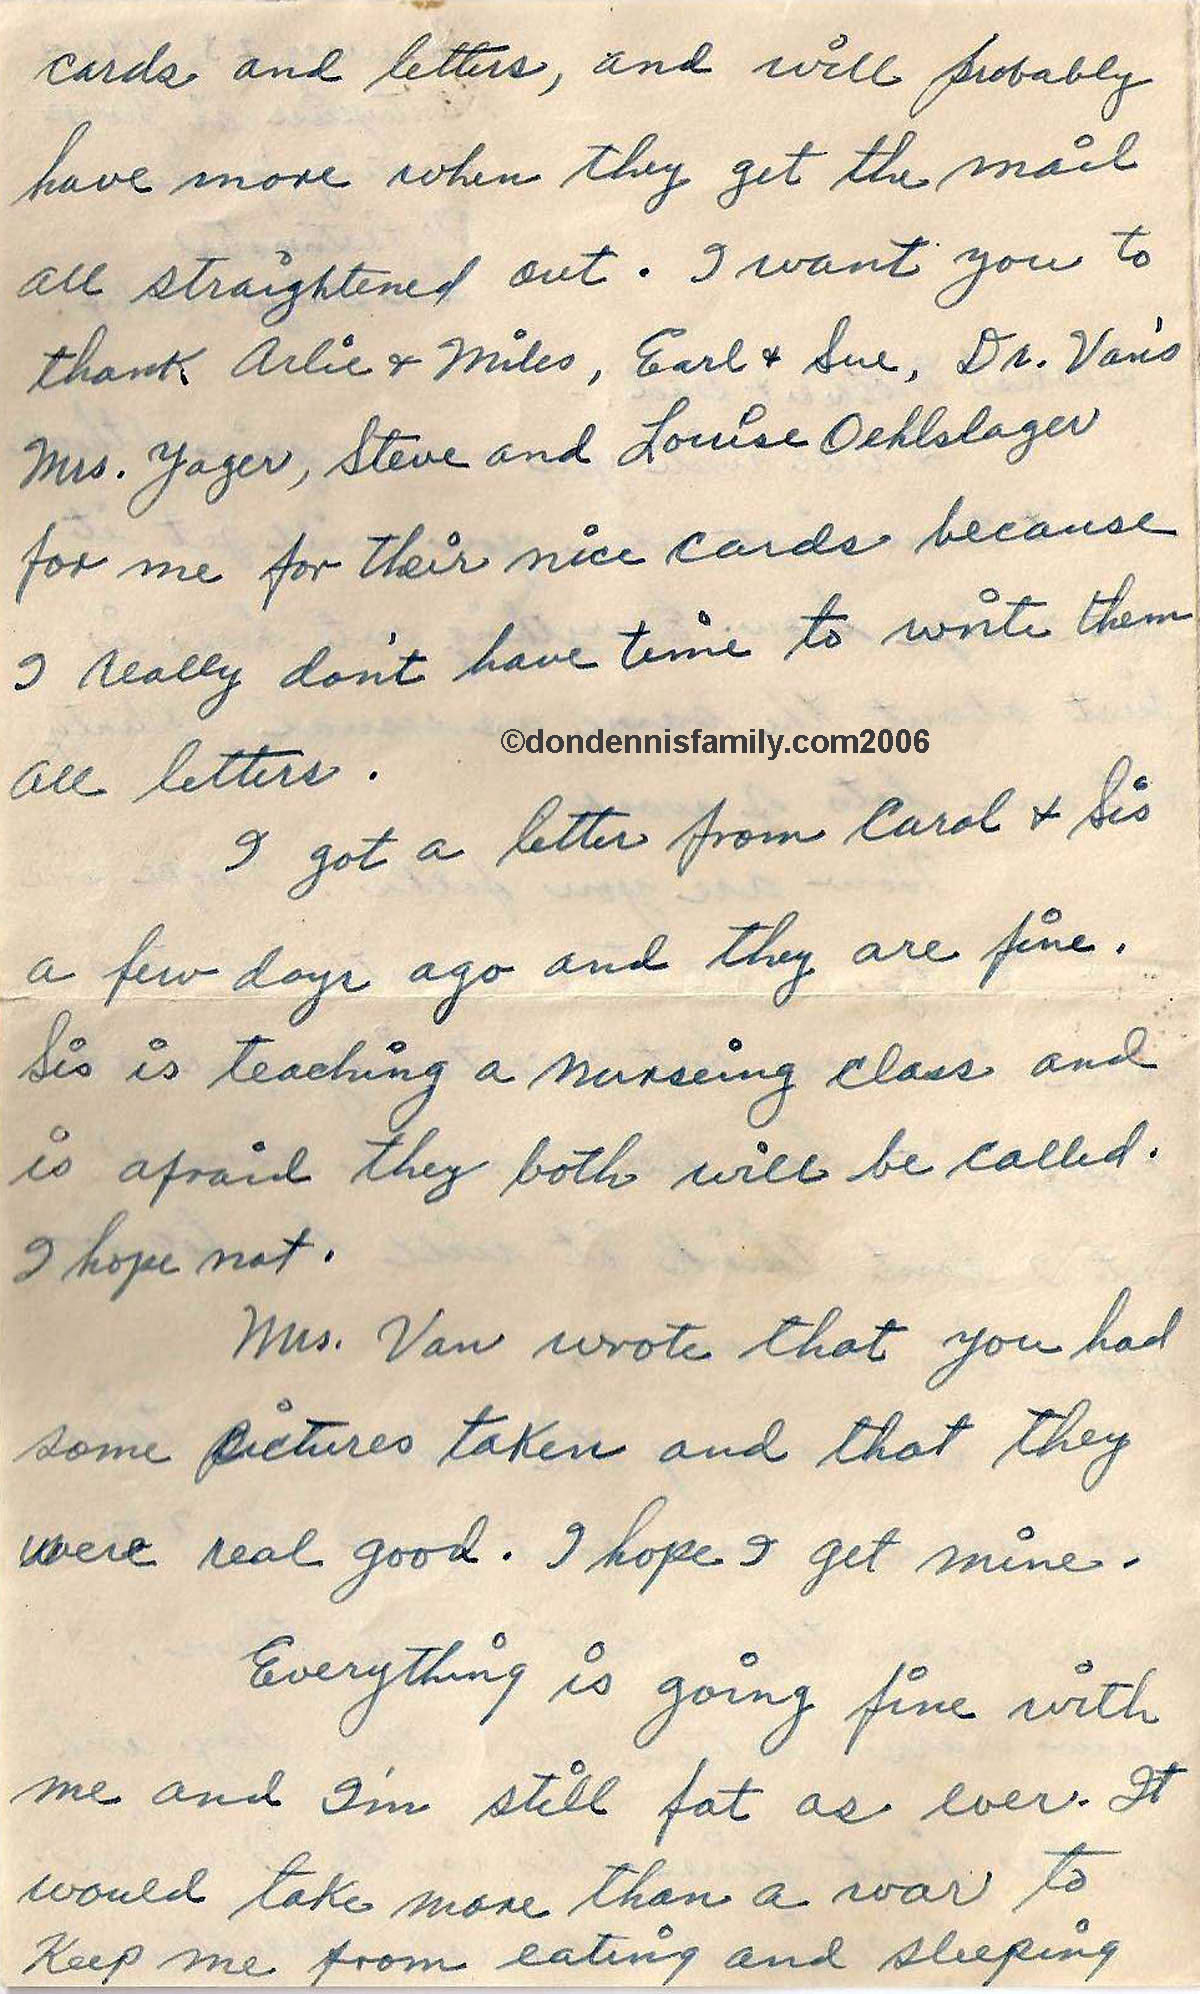 cards and letters, and will probably
have more when they get the mail
all straightened out. I want you to
thank Arlie & Miles, Earl & Sue, Dr. Van's
Mrs. Yager, Steve and Louise Oehlslager
for me for their nice cards because
I really don't have time to write them
©dondennisfamily.com2006
all letters.
I got a letter from Carol & Sis
a few days ago and they are fine.
Sis is teaching a nurseing class and
is afraid they both will be called.
I hope not.
Mrs. Van wrote that you had
some pictures taken and that they
were real good. I hope I get mine.
Everything is going fine with
me and I'm still fat as ever. It
would take more than a war to
keep me from eating and sleeping